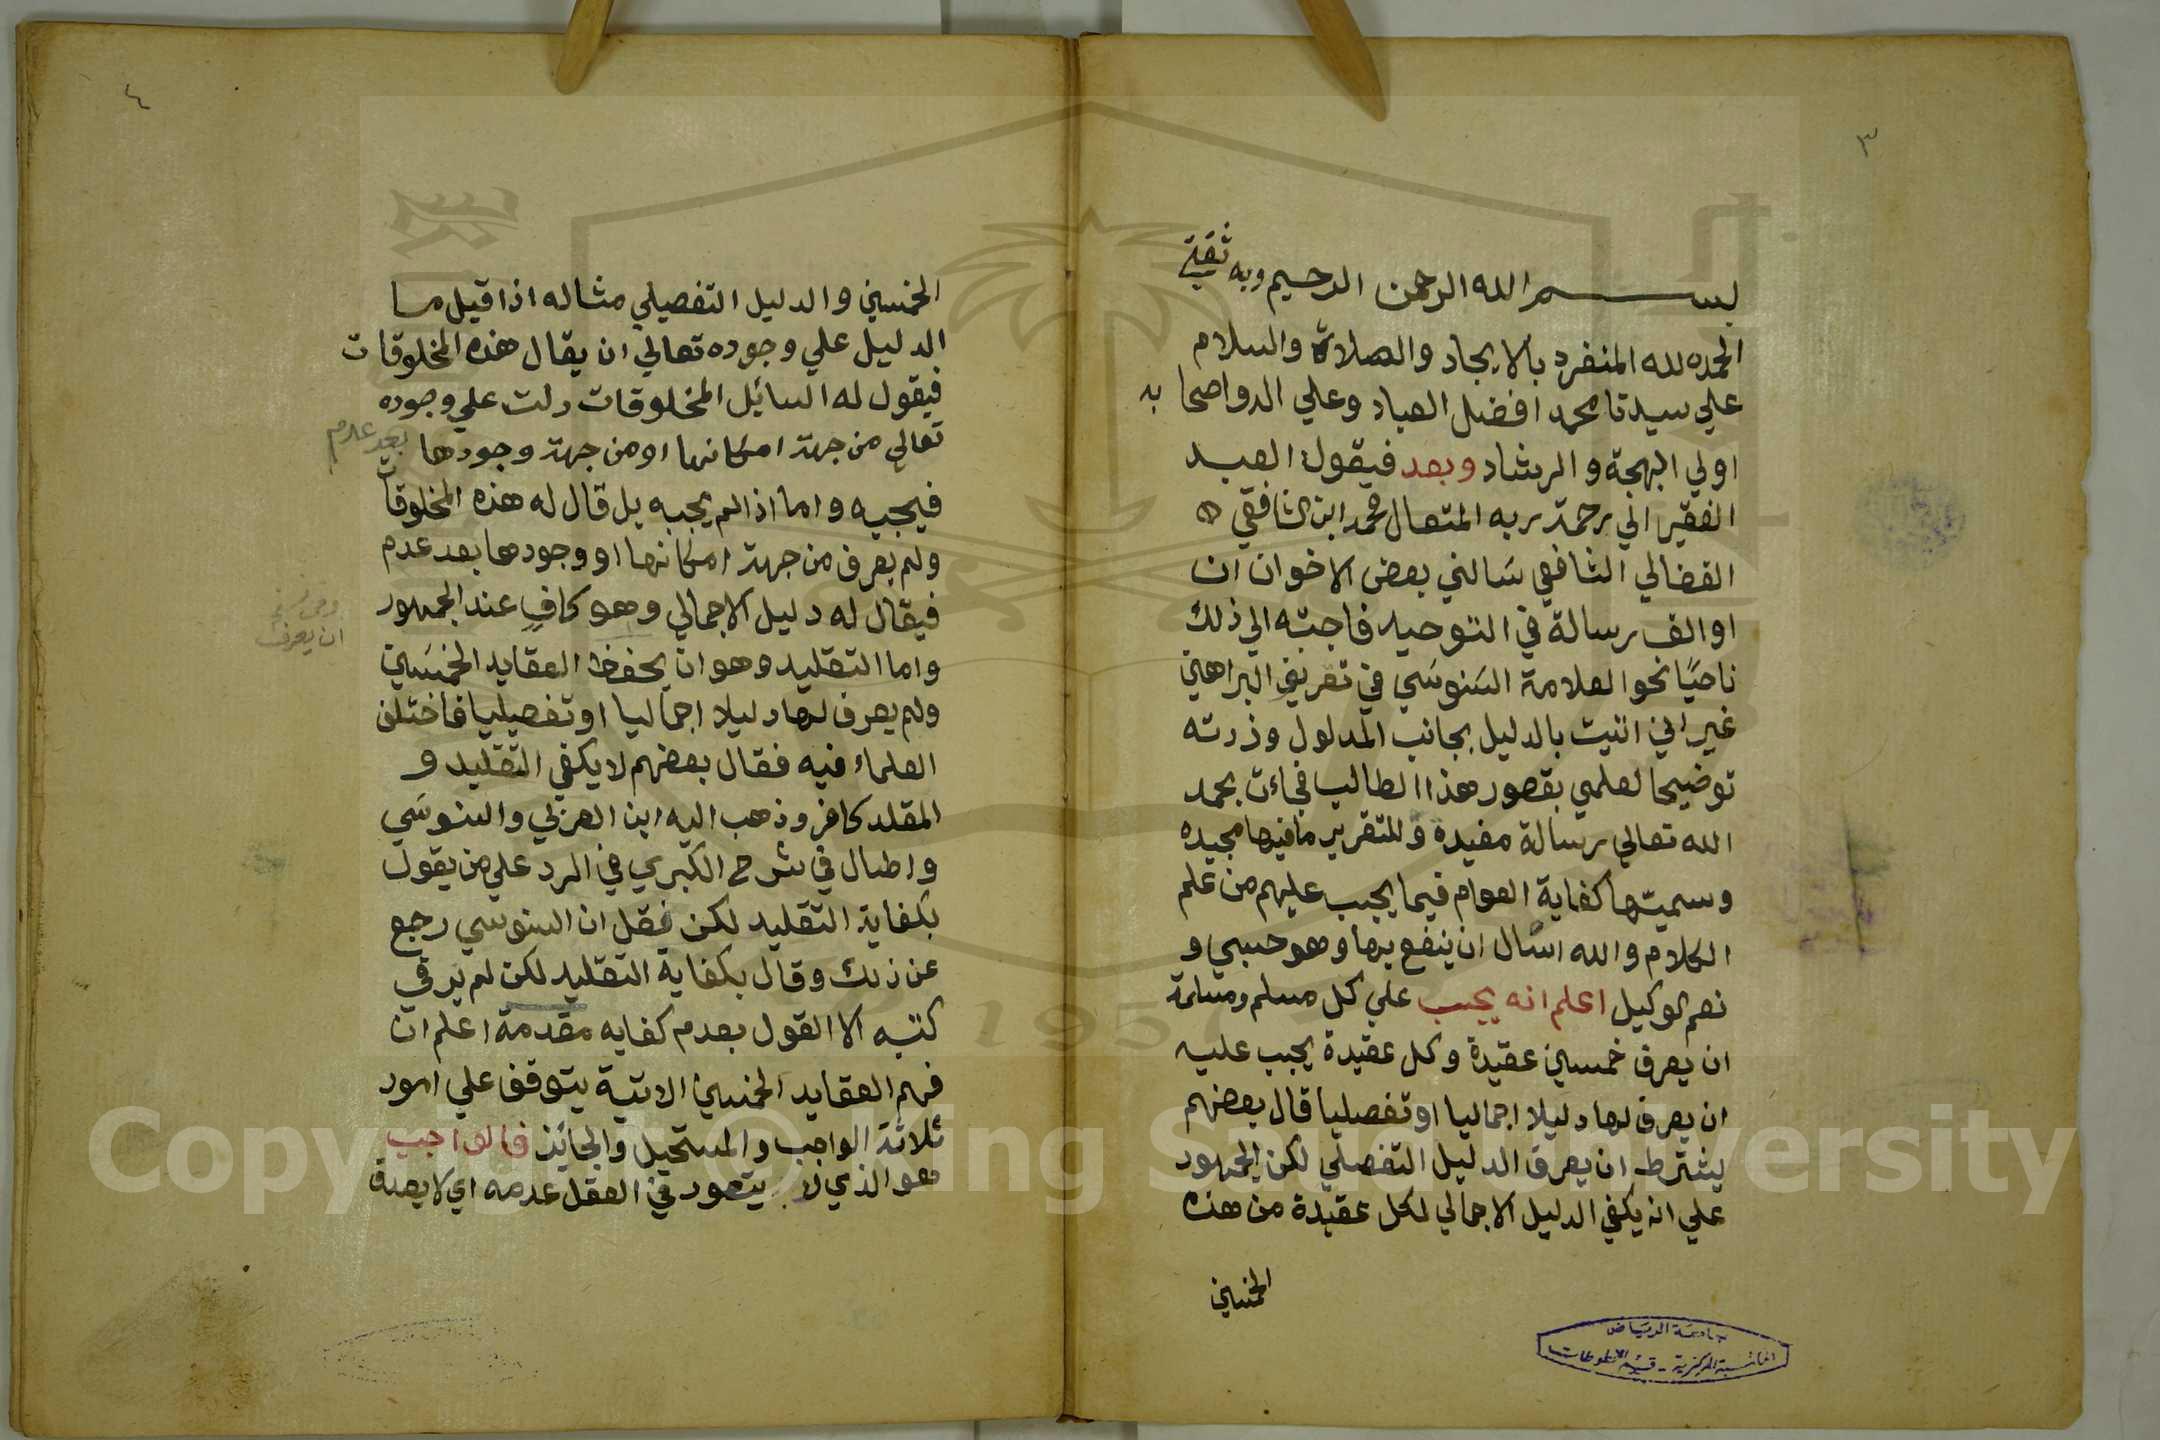 ٣
بسم الله الرحمن الرحيم وبه ثقتي
الحمد لله المنفرد بالايجاد والصلاة والسلام
علي سيدنا محمد افضل العباد وعلي اله واصحابه
اولي البهجة والرشاد وبعد فيقول العبد
الفقير الي رحمة ربه المتعال محمد ابن الشافعي
الفضالي الشافعي سالني بعض الاخوان ان
اوالف رسالة في التوحيد فاجبته الي ذلك
ناحيًا نحو العلامة السنوسي في تقرير البراهين
غير اني اتيت بالدليل بجانب المدلول وزدته
توضيحا لعلمي بقصور هذا الطالب فجاءت بحمد
الله تعالي رسالة مفيدة وللتقرير ما فيها مجيده
وسميتها كفاية العوام فيما يجب عليهم من علم
الكلام والله اسال ان ينفع بها وهو حسبي و
نعم الوكيل اعلم انه يجب علي كل مسلم ومسلمة
ان يعرف خمسين عقيدة وكل عقيدة يجب عليه
ان يعرف لها دليلا اجماليا او تفصيليا قال بعضهم
يشترط ان يعرف الدليل التفصيلي لكن الجمهور
علي انه يكفي الدليل الاجمالي لكل عقيدة من هذه
الخمسين
جامعة الرياض
المركزية - قسم المخطوطات
٤
الخمسين والدليل التفصيلي مثاله اذا قيل ما
الدليل علي وجوده تعالي ان يقال هذه المخلوقات
فيقول له السائل المخلوقات دلت علي وجوده
تعالي من جهة امكانها او من جهة وجودها بعد عدم
فيجيبه واما اذا لم يجبه بل قال له هذه المخلوقات
ولم يعرف من جهة امكانها او وجودها بعد عدم
فيقال له دليل الاجمالي وهو كافٍ عند الجمهور
واما التقليد وهو ان يحفظ العقايد الخمسين
ان يعرف
ولم يعرف لها دليلا اجماليا او تفصيليا فاختلف
العلماء فيه فقال بعضهم لا يكفي التقليد و
المقلد كافر وذهب اليه ابن العربي والسنوسي
واطال في شرح الكبري في الرد علي من يقول
بكفاية التقليد لكن نقل ان السنوسي رجع
عن ذلك وقال بكفاية التقليد لكن لم ير في
كتبه الا القول بعدم كفايه مقدمة اعلم ان
فهم العقايد الخمسين الاتية يتوقف علي امور
ثلاثة الواجب والمستحيل والجائز فالواجب
هو الذي لا يتصور في العقل عدمه اي لا يصدق
Copyright © King Saud University
1957